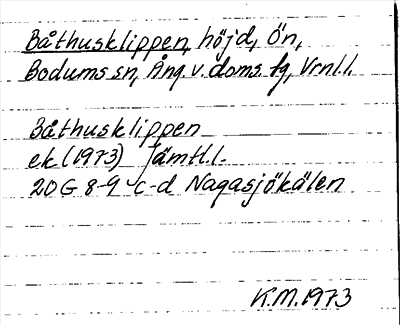 Båthusklippen, höjd, Ön,
Bodums sn, Ång. v. doms. fg, Vrnl.l.
Båthusklippen
ek (1973) Jämtl.l.
20G 8-9 c-d Nagasjökälen
K.M. 1973